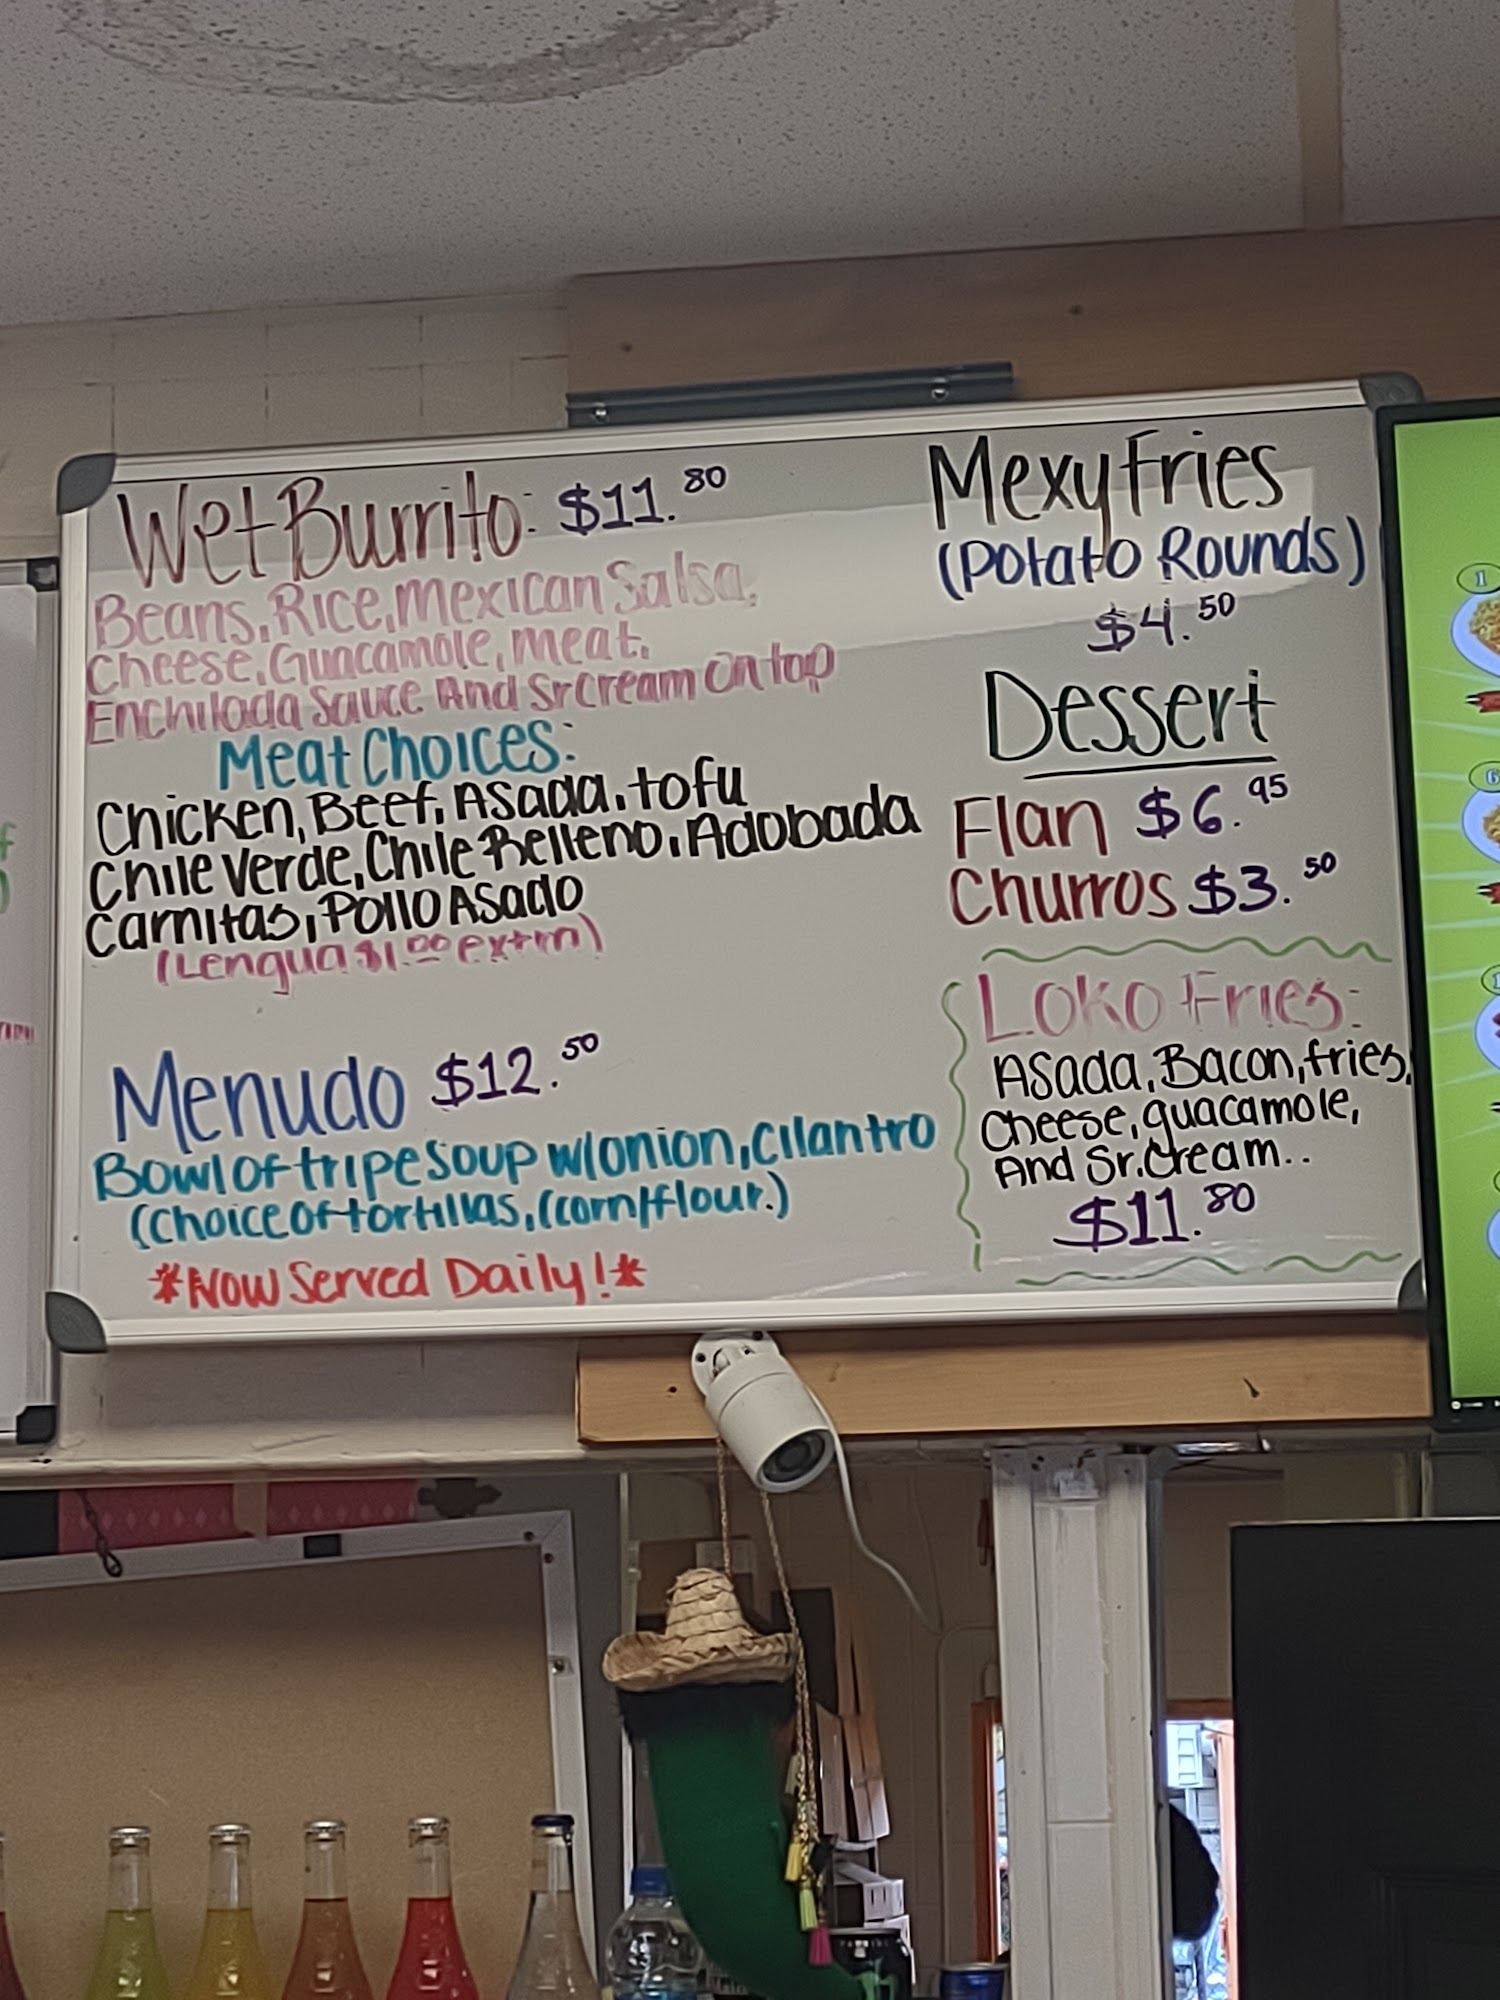 Wet Burrito: $11.80
Beans, Rice, Mexican Salsa,
Cheese, Guacamole, Meat,
Enchilada Sauce And Sr Cream On top
Meat Choices:
Chicken, Beef, Asada, tofu
Chile Verde, Chile Relleno, Adobada
Carnitas, Pollo Asado
(Lengua $1.00 extra)
Menudo $12.50
Bowl of tripe soup w/onion, cilantro
(Choice of tortillas, (corn/flour.)
*Now Served Daily!*
Mexy Fries
(Potato Rounds)
$4.50
Dessert
Flan $6.95
Churros $3.50
Loko Fries:
Asada, Bacon, fries,
Cheese, guacamole,
And Sr. Cream..
$11.80
1
6